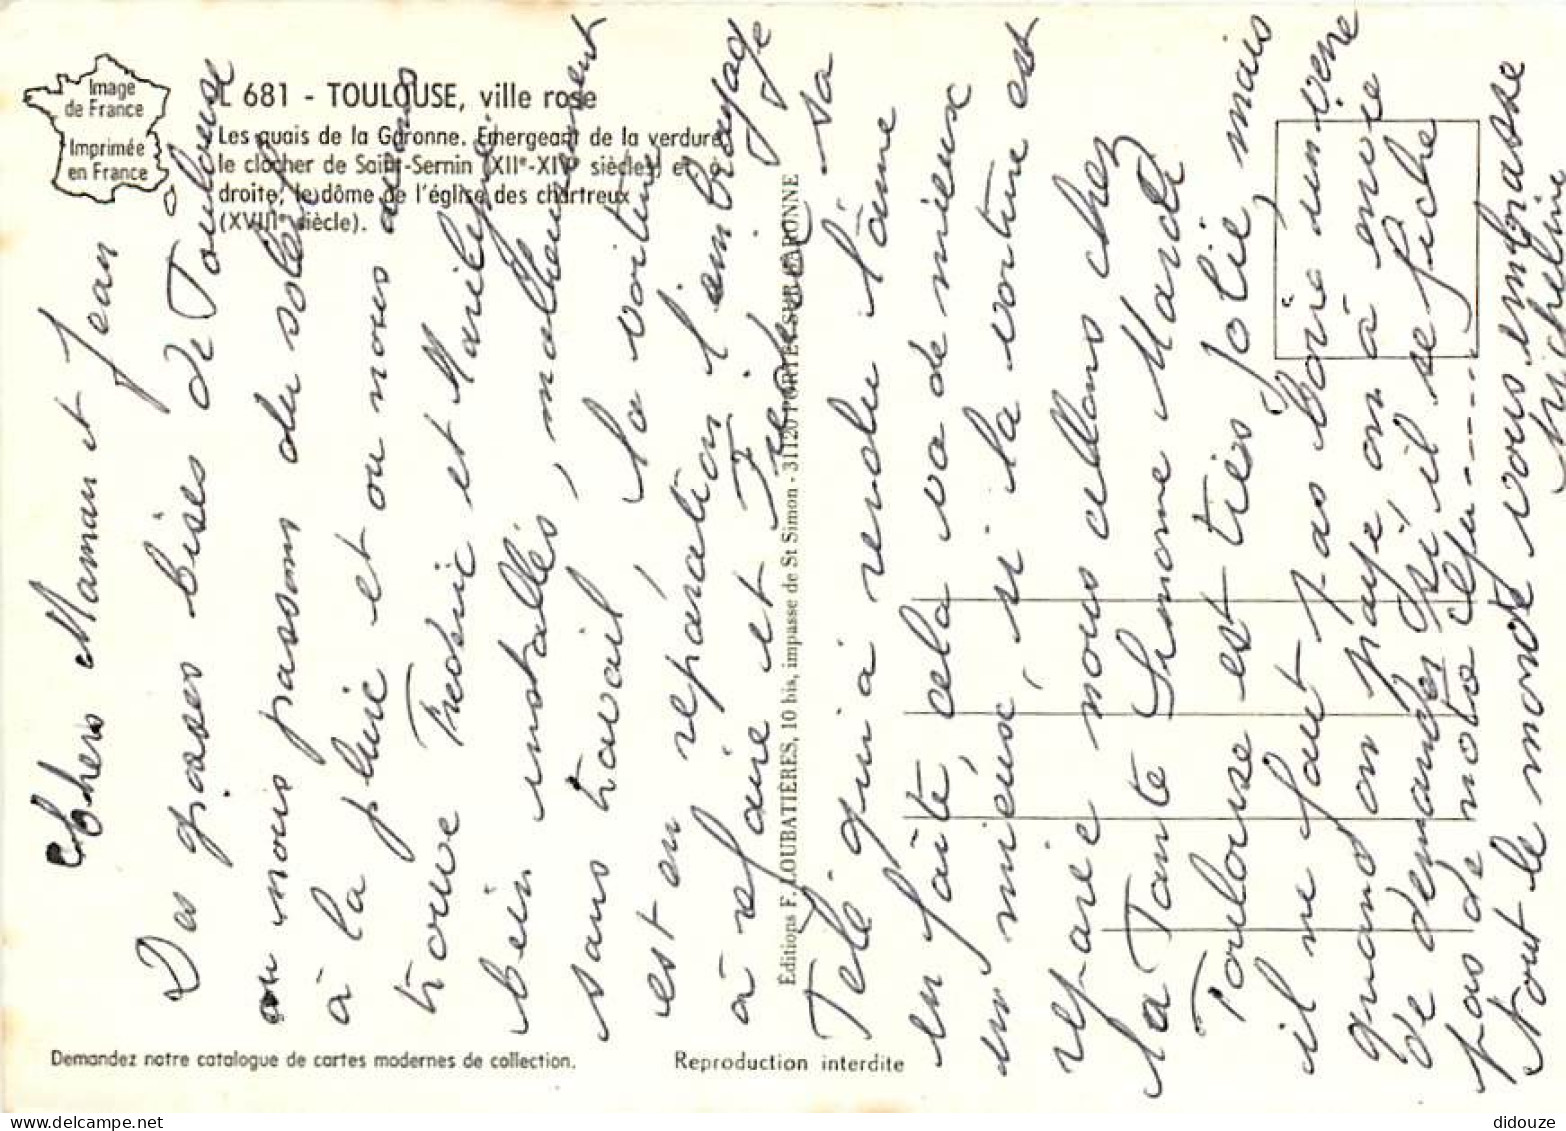 Image
de France
Imprimée
en France
L 681 - TOULOUSE, ville rose
Les quais de la Garonne. Emergeant de la verdure,
le clocher de Saint-Sernin (XIIe-XIVe siècles) et à
droite, le dôme de l'église des chartreux
(XVIIIe siècle).
Chers Maman et Jean
Des grosses bises de Toulouse
ou nous passons du soleil
à la pluie et ou nous avons
trouve Frederic et Marilyse
bien installés, malheureusement
sans travail, la voiture
est en reparation l'embrayage
à refaire et Frederic sa
Tele qui a rendu l'âme
en faite, cela va de mieux
en mieux, si la voiture est
reparie nous allons chez
la Tante Simone Mardi
Toulouse est tres jolie, mais
il ne faut pas boire un verre
quand on paye on à envie
de demander si il se fiche
pas de notre
tout le monde vous embrasse
Micheline
Éditions F. LOUBATIÈRES, 10 bis, impasse de St Simon - 31120 PORTET-SUR-GARONNE
Demandez notre catalogue de cartes modernes de collection.
Reproduction interdite
didouze